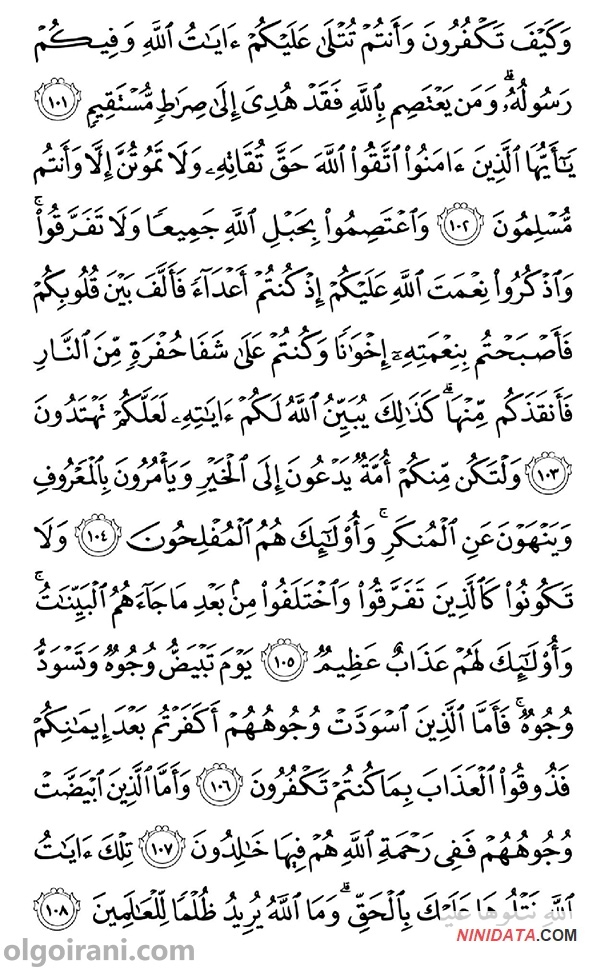 وَكَيْفَ تَكْفُرُونَ وَأَنتُمْ تُتْلَىٰ عَلَيْكُمْ ءَايَـٰتُ ٱللَّهِ وَفِيكُمْ
رَسُولُهُۥ ۗ وَمَن يَعْتَصِم بِٱللَّهِ فَقَدْ هُدِىَ إِلَىٰ صِرَٰطٍ مُّسْتَقِيمٍ ١٠١
يَـٰٓأَيُّهَا ٱلَّذِينَ ءَامَنُوا۟ ٱتَّقُوا۟ ٱللَّهَ حَقَّ تُقَاتِهِۦ وَلَا تَمُوتُنَّ إِلَّا وَأَنتُم
مُّسْلِمُونَ ١٠٢ وَٱعْتَصِمُوا۟ بِحَبْلِ ٱللَّهِ جَمِيعًا وَلَا تَفَرَّقُوا۟ ۚ
وَٱذْكُرُوا۟ نِعْمَتَ ٱللَّهِ عَلَيْكُمْ إِذْ كُنتُمْ أَعْدَآءً فَأَلَّفَ بَيْنَ قُلُوبِكُمْ
فَأَصْبَحْتُم بِنِعْمَتِهِۦٓ إِخْوَٰنًا وَكُنتُمْ عَلَىٰ شَفَا حُفْرَةٍ مِّنَ ٱلنَّارِ
فَأَنقَذَكُم مِّنْهَا ۗ كَذَٰلِكَ يُبَيِّنُ ٱللَّهُ لَكُمْ ءَايَـٰتِهِۦ لَعَلَّكُمْ تَهْتَدُونَ
١٠٣ وَلْتَكُن مِّنكُمْ أُمَّةٌ يَدْعُونَ إِلَى ٱلْخَيْرِ وَيَأْمُرُونَ بِٱلْمَعْرُوفِ
وَيَنْهَوْنَ عَنِ ٱلْمُنكَرِ ۚ وَأُو۟لَـٰٓئِكَ هُمُ ٱلْمُفْلِحُونَ ١٠٤ وَلَا
تَكُونُوا۟ كَٱلَّذِينَ تَفَرَّقُوا۟ وَٱخْتَلَفُوا۟ مِنۢ بَعْدِ مَا جَآءَهُمُ ٱلْبَيِّنَـٰتُ ۚ
وَأُو۟لَـٰٓئِكَ لَهُمْ عَذَابٌ عَظِيمٌ ١٠٥ يَوْمَ تَبْيَضُّ وُجُوهٌ وَتَسْوَدُّ
وُجُوهٌ ۚ فَأَمَّا ٱلَّذِينَ ٱسْوَدَّتْ وُجُوهُهُمْ أَكَفَرْتُم بَعْدَ إِيمَـٰنِكُمْ
فَذُوقُوا۟ ٱلْعَذَابَ بِمَا كُنتُمْ تَكْفُرُونَ ١٠٦ وَأَمَّا ٱلَّذِينَ ٱبْيَضَّتْ
وُجُوهُهُمْ فَفِى رَحْمَةِ ٱللَّهِ هُمْ فِيهَا خَـٰلِدُونَ ١٠٧ تِلْكَ ءَايَـٰتُ
ٱللَّهِ نَتْلُوهَا عَلَيْكَ بِٱلْحَقِّ ۗ وَمَا ٱللَّهُ يُرِيدُ ظُلْمًا لِّلْعَـٰلَمِينَ ١٠٨
NINIDATA.COM
olgoirani.com